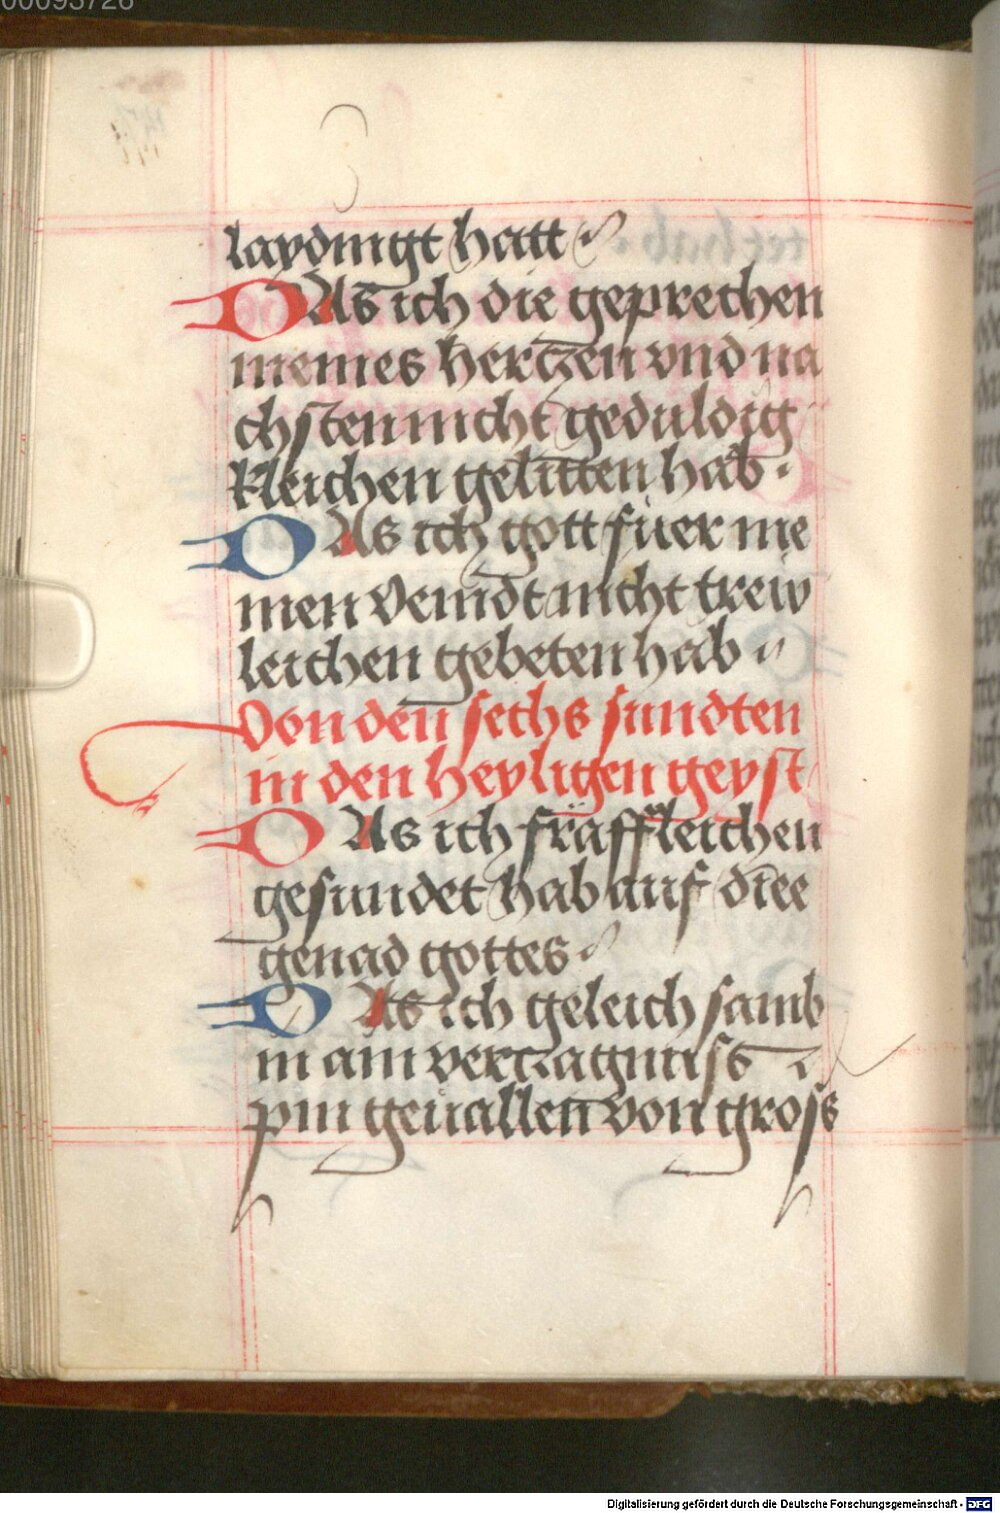 00093726
laydingt hatt
DAs ich die geprechen
meines hertzen vnd na
chsten nicht geduldig
kleichen gelitten hab ·
DAs ich gott füer me
men veindt nicht trew
leichen gebeten hab
Von den sechs sundten
in den heyligen geyst
DAs ich fräffleichen
gesundet hab auf diee
genad gottes
DAs ich geleich samb
in ain vertzagnuss
pin geuallen von gross
Digitalisierung gefördert durch die Deutsche Forschungsgemeinschaft - DFG